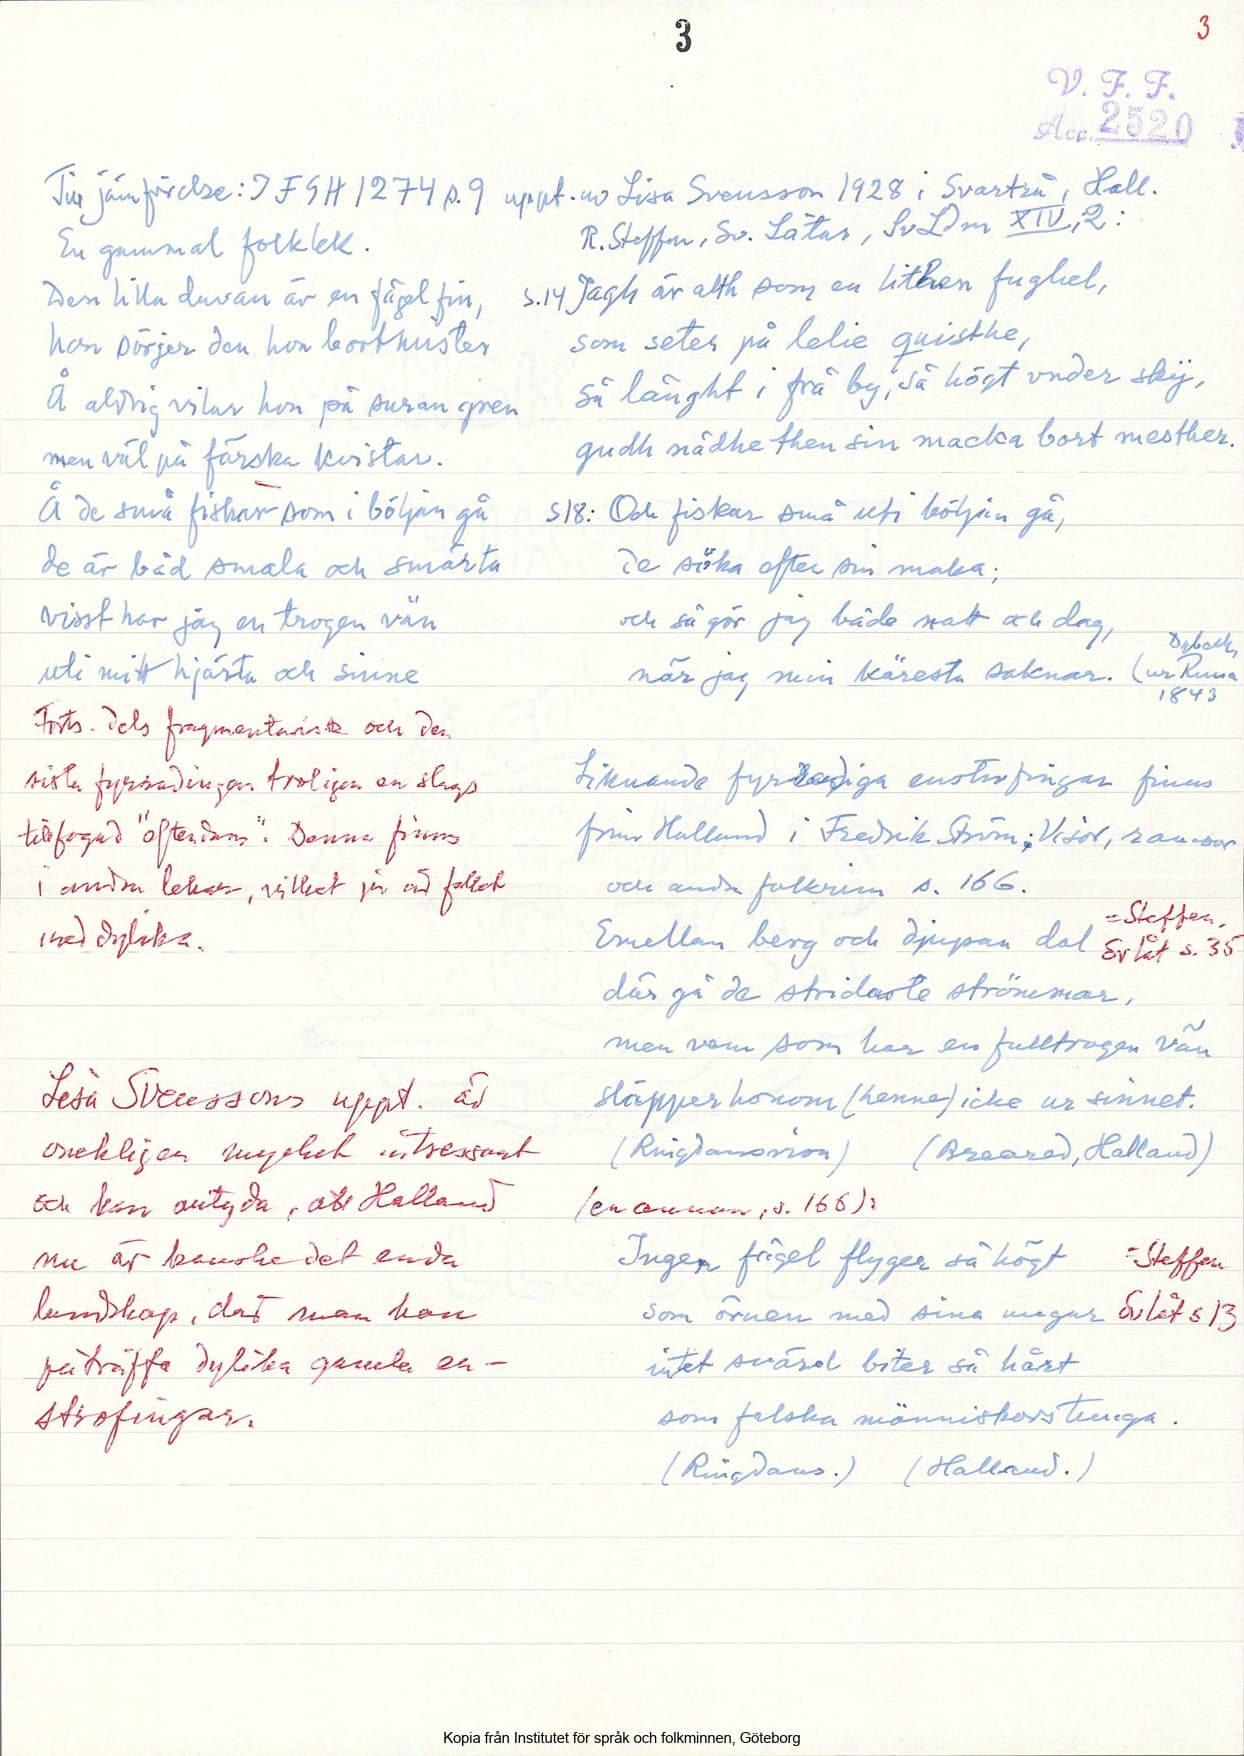 3
3
V. F. F.
Acc. 2520
Till jämförelse: IFGH 1274 s. 9 uppt. av Lisa Svensson 1928 i Svartrå, Hall.
En gammal folklek.
Den lilla duvan är en fågel fin,
hon sörjer den hon bortmister
Å aldrig vilar hon på suran gren
men väl på färska kvistar.
Å de små fiskar som i böljan gå
de är båd smala och smärta
visst har jag en trogen vän
uti mitt hjärta och sinne
Forts. dels fragmentarisk och den
sista fyrradingen troligen en slags
tillfogad "efterdans". Denna finns
i andra lekar, vilket ju är fallet
med dylika.
Lisa Svenssons uppt. är
onekligen mycket intressant
och kan antyda, att Halland
nu är kanske det enda
landskap, där man kan
påträffa dylika gamla en-
strofingar.
R. Steffen, Sv. Låtar, SvLdm XIV, 2:
s. 14 Jagh är alth som en lithen fughel,
som seter på lelie quisthe,
så länght i frå by, så högt vnder skÿ,
gudh nådhe then sin macka bort mesther.
s 18: Och fiskar små uti böljan gå,
de söka efter sin maka;
och så gör jag både natt och dag,
när jag min käresta saknar. (ur Runa
1843
Liknande fyrradiga enstrofingar finns
från Halland i Fredrik Ström: Visor, ramsor
och andra folkrim s. 166.
Emellan berg och djupan dal
= Steffen,
Sv låt s. 35
där gå de stridaste strömmar,
men vem som har en fulltrogen vän
släpper honom (henne) icke ur sinnet.
(Ringdansvisa) (Breared, Halland)
(en annan, s. 166):
Ingen fågel flyger så högt
= Steffen
som örnen med sina ungar
Sv låt s 13
intet svärd biter så hårt
som falska människors tunga.
(Ringdans.) (Halland.)
Kopia från Institutet för språk och folkminnen, Göteborg